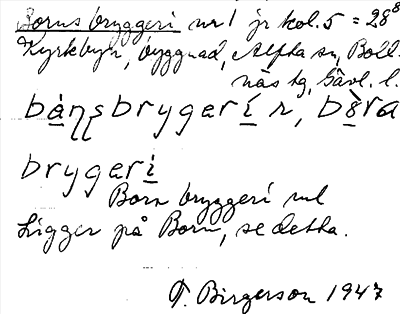 Borns bryggeri nr 1 jr kol. 5 = 28⁸
Kyrkbyn, byggnad, Alfta sn, Boll-
näs tg, Gävl. l.
bånsbrygeri r, bòra
brygeri
Born bryggeri nel
Ligger på Born, se detta.
T. Birgerson 1947